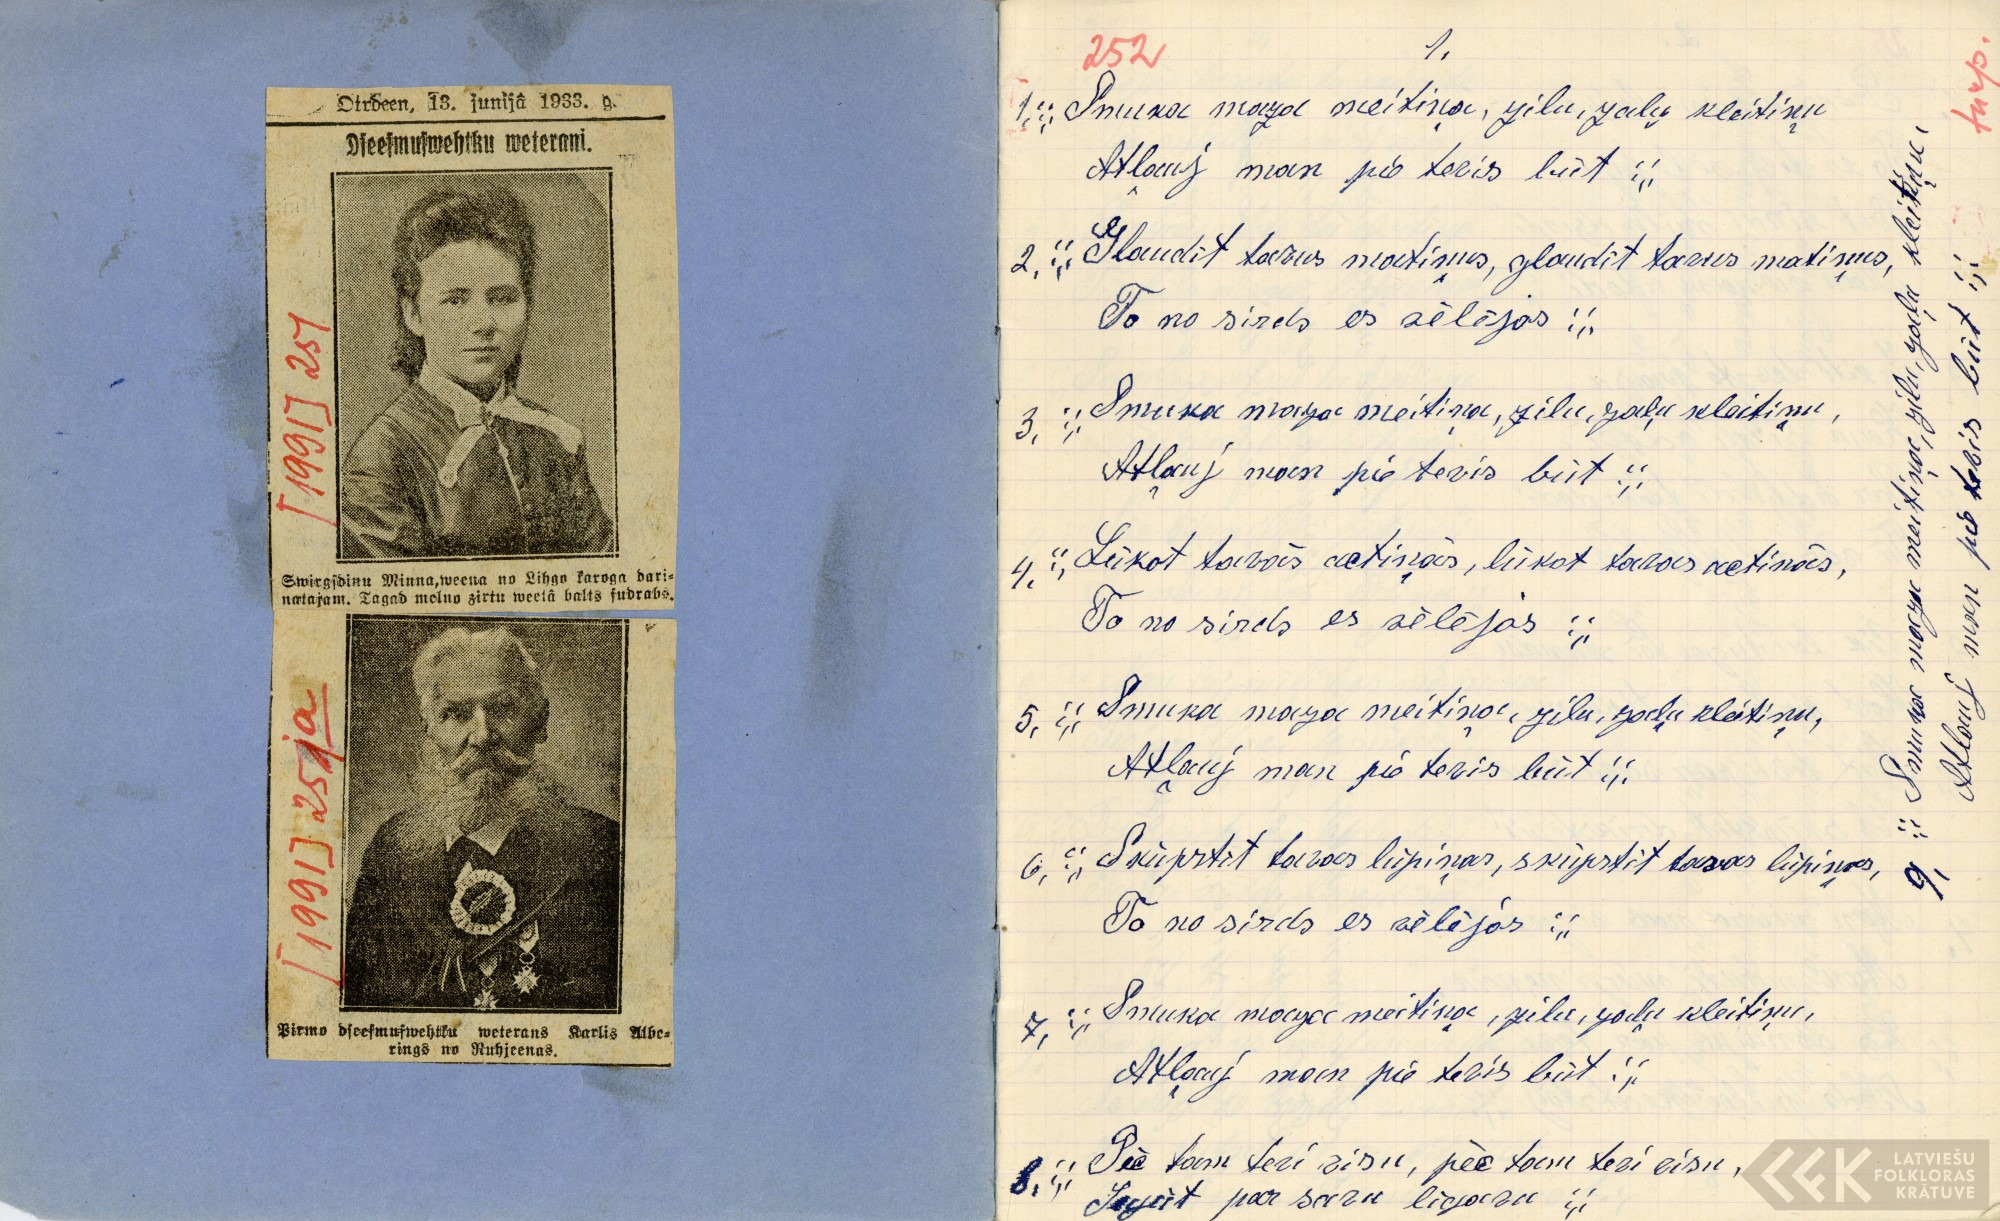 Otrdeen, 13. junijâ 1933. g.
Dseesmuswehtku weterani.
[1991] 251
Swirgsdinu Minna, weena no Lihgo karoga dari-
natajam. Tagad melno zirtu weetâ balts sudrabs.
[1991] 251a
Pirmo dseesmuswehtku weterans Karlis Albe-
rings no Ruhjeenas.
252
1.
1. :,: Smuka maza meitiņa, zilu, zaļu kleitiņu
Atļauj man pie tevis būt :,:
2. :,: Glaudīt tavus matiņus, glaudīt tavus matiņus,
To no sirds es vēlējos :,:
3. :,: Smuka maza meitiņa, zilu, zaļu kleitiņu,
Atļauj man pie tevis būt :,:
4. :,: Lūkot tavās actiņās, lūkot tavas actinās,
To no sirds es vēlējos :,:
5. :,: Smuka maza meitiņa, zilu, zaļu kleitiņu,
Atļauj man pie tevis būt :,:
6. :,: Skūpstīt tavas lūpiņas, skūpstīt tavas lūpiņas,
To no sirds es vēlējos :,:
7. :,: Smuka maza meitiņa, zilu, zaļu kleitiņu,
Atļauj man pie tevis būt :,:
8. :,: Pēc tam tevi visu, pēc tam tevi visu,
Iegūt par savu līgavu :,:
9. :,: Smuka maza meitiņa, zilu, zaļu kleitiņu,
Atļauj man pie tevis būt :,:
turp.
LATVIEŠU
FOLKLORAS
KRĀTUVE